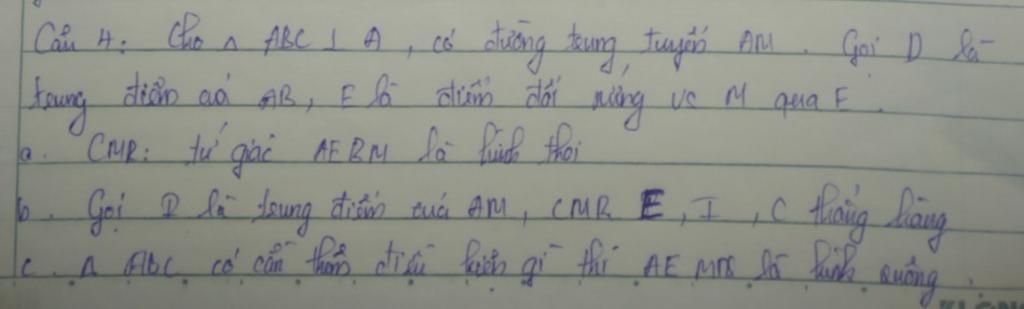 Câu 4: Cho △ ABC ⊥ A, có đường trung tuyến AM. Gọi D là
trung điểm củả AB, E là điểm đối xứng vs M qua E.
a. CMR: tứ giác AEBM là hình thoi
b. Gọi I là trung điểm củả AM, CMR E, I, C thẳng hàng
c. △ ABC có cần thêm điều kiện gì thì AEMB là hình vuông.